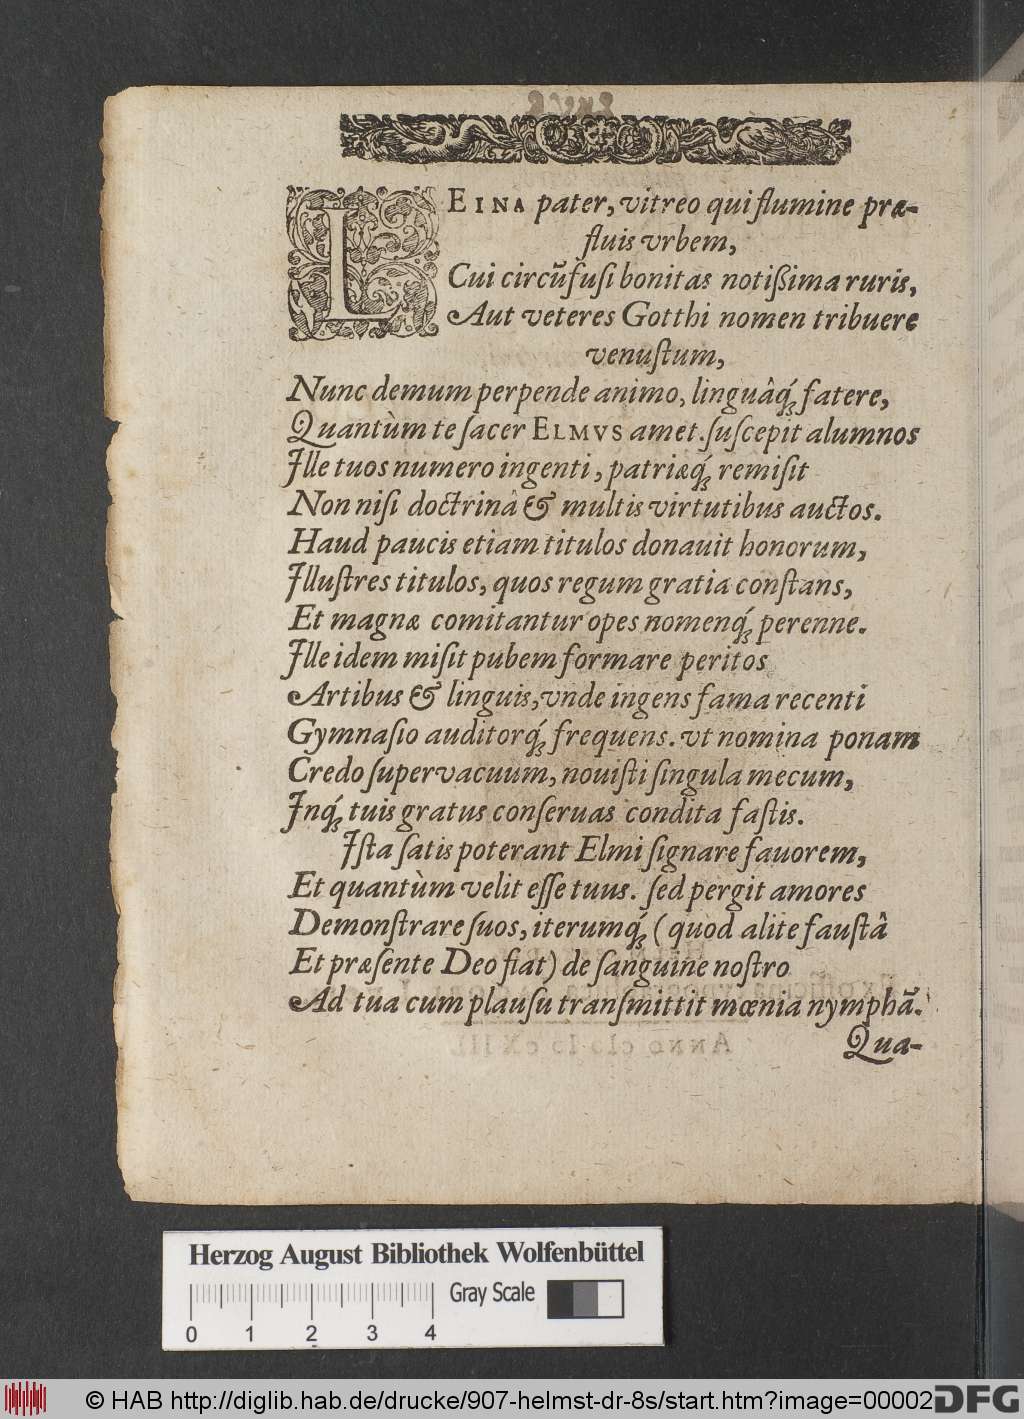 LEINA pater, vitreo qui flumine præ-
fluis vrbem,
Cui circũfusi bonitas notißima ruris,
Aut veteres Gotthi nomen tribuere
venustum,
Nunc demum perpende animo, linguâq́; fatere,
Quantùm te sacer ELMVS amet. suscepit alumnos
Ille tuos numero ingenti, patriæq́; remisit
Non nisi doctrinâ & multis virtutibus auctos.
Haud paucis etiam titulos donauit honorum,
Illustres titulos, quos regum gratia constans,
Et magnæ comitantur opes nomenq́; perenne.
Ille idem misit pubem formare peritos
Artibus & linguis, vnde ingens fama recenti
Gymnasio auditorq́; frequens. vt nomina ponam
Credo supervacuum, nouisti singula mecum,
Inq́; tuis gratus conseruas condita fastis.
Ista satis poterant Elmi signare fauorem,
Et quantùm velit esse tuus. sed pergit amores
Demonstrare suos, iterumq́; (quod alite faustâ
Et præsente Deo fiat) de sanguine nostro
Ad tua cum plausu transmittit mœnia nymphã.
Qua-
Herzog August Bibliothek Wolfenbüttel
Gray Scale
0 1 2 3 4
© HAB http://diglib.hab.de/drucke/907-helmst-dr-8s/start.htm?image=00002
DFG